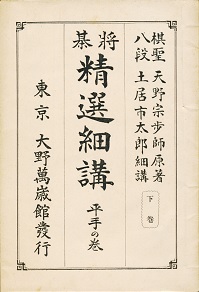 棋聖 天野宗歩師原著
八段 土居市太郎細講
下卷
將棊 精選細講
平手の卷
東京 大野萬歲館發行